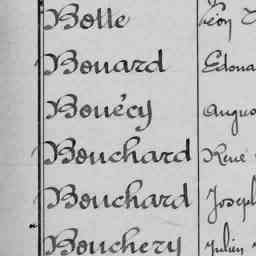 Bolle Léon
Bouard Edoua
Bouécy Augus
Bouchard René
Bouchard Joseph
Bouchery Julien